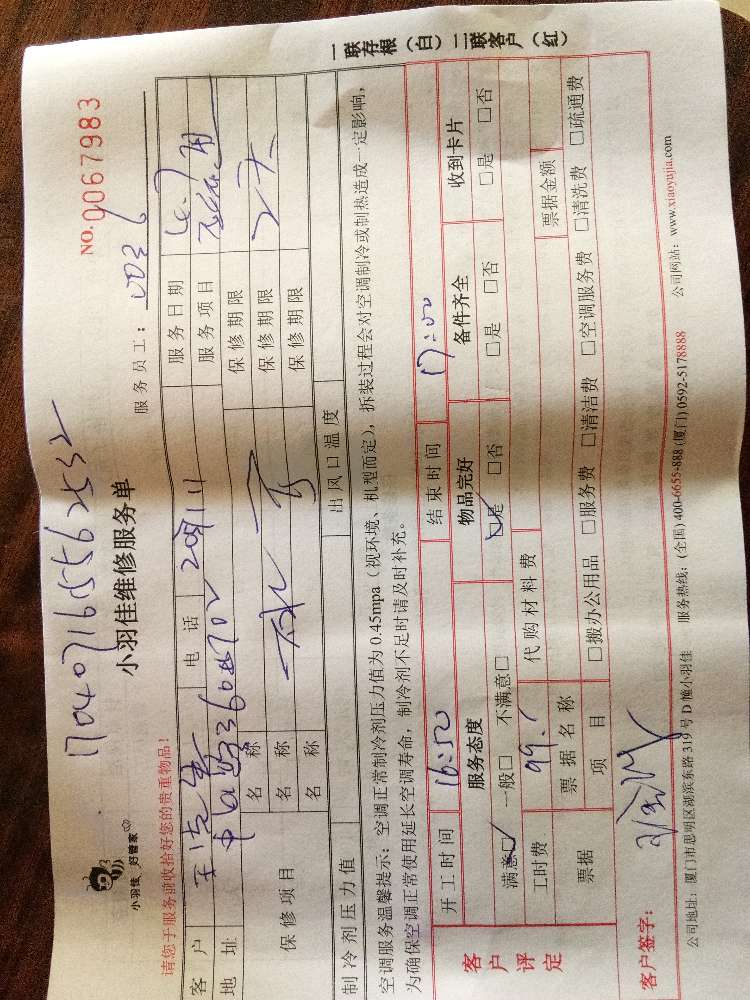 1704071655562532
小羽佳 好管家
小羽佳维修服务单
NO.0067983
请您于服务前收拾好您的贵重物品!
服务员工:
客户 电话 服务日期
地址 服务项目
保修项目 名称 保修期限
名称 保修期限 2天
名称 保修期限
制冷剂压力值 出风口温度
空调服务温馨提示:空调正常制冷剂压力值为0.45mpa(视环境、机型而定),拆装过程会对空调制冷或制热造成一定影响,
为确保空调正常使用延长空调寿命,制冷剂不足时请及时补充。
客户评定
开工时间 16:50 结束时间 17:00
服务态度 物品完好 备件齐全 收到卡片
满意☑ 一般□ 不满意□ ☑是 □否 □是 □否 □是 □否
工时费 99.- 代购材料费
票据 票据名称 票据金额
项目 □搬办公用品 □服务费 □清洁费 □空调服务费 □清洗费 □疏通费
客户签字:
公司地址:厦门市思明区湖滨东路319号D幢小羽佳 服务热线:(全国)400-6655-888(厦门)0592-5178888 公司网站:www.xiaoyujia.com
一联存根(白)二联客户(红)